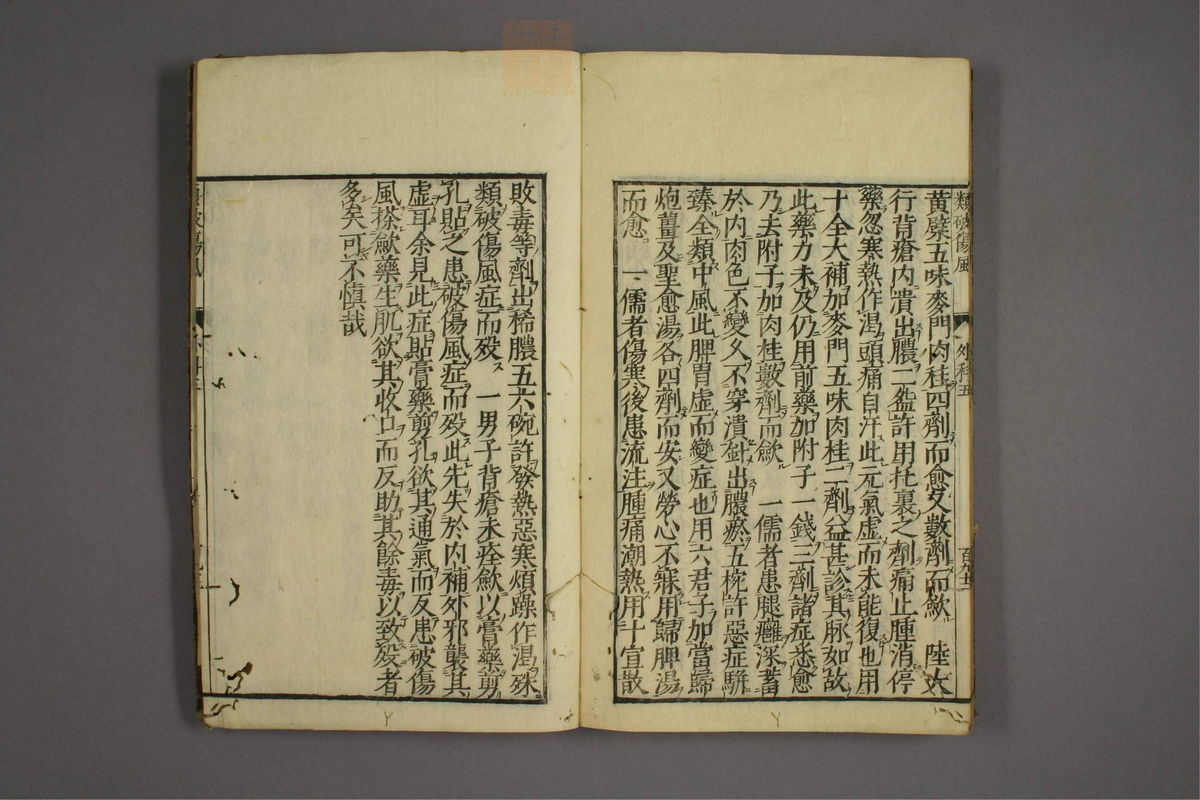 類破傷風 外科五
黄蘗五味麥門肉桂四劑而愈又數劑而斂 陸大
行背瘡内潰出膿二盌許用托裏之劑痛止腫消停
藥忽寒熱作渴頭痛自汗此元氣虚而未能復也用
十全大補加麥門五味肉桂二劑益甚診其脉如故
此藥力未及仍用前藥加附子一錢三劑諸症悉愈
乃去附子加肉桂數劑而斂 一儒者患腿癰深蓄
於内肉色不變久不穿潰針出膿瘀五椀許惡症駢
臻全類中風此脾胃虚而變症也用六君子加當歸
炮薑及聖愈湯各四劑而安又勞心不寐用歸脾湯
而愈 一儒者傷寒後患流注腫痛潮熱用十宣散
敗毒等劑出稀膿五六碗許發熱惡寒煩躁作渴殊
類破傷風症而殁 一男子背瘡未痊歛以膏藥剪
孔貼之患破傷風症而殁此先失於内補外邪襲其
虚耳余見此症貼膏藥剪孔欲其通氣而反患破傷
風搽斂藥生肌欲其收口而反助其餘毒以致殁者
多矣可不慎哉